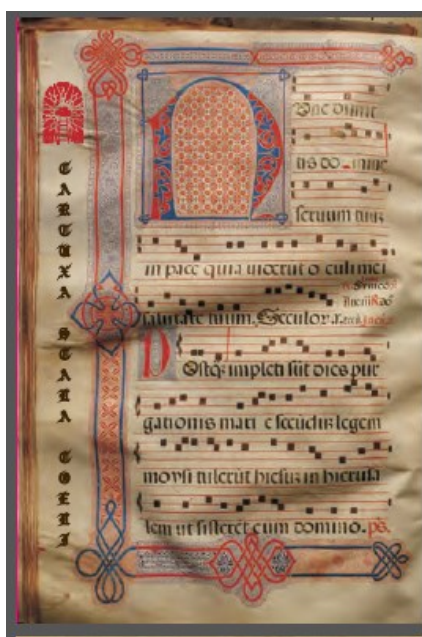 CARTUXA SCALA COELI
NVnc dimit
tis do mine
seruum tuũ
in pace quia uiderũt o culi mei
salutare tuum. Seculor.
POstq; impleti sũt dies pur
gationis mari e secũdũ legem
moysi tulerũt in hierusa
lem ut sisterẽt eum domino. ps.